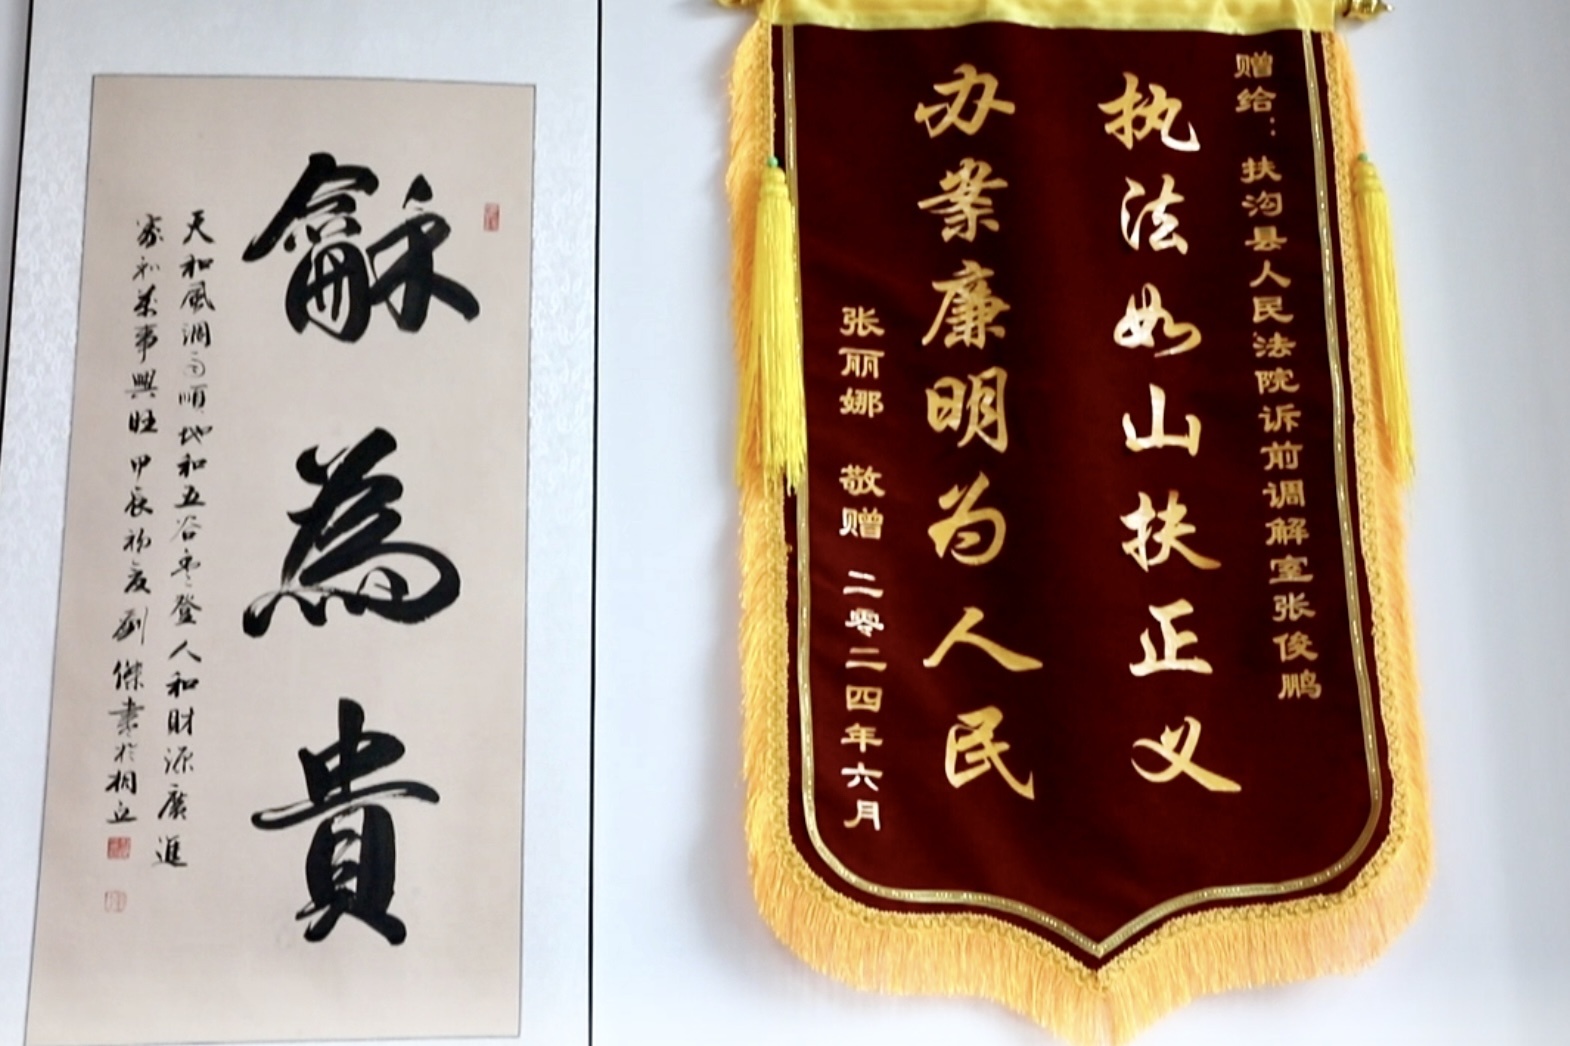 龢為貴
天和風調雨順地和五谷豐登人和財源廣進
家和萬事興旺甲辰初夏劉傑書於桐丘
赠给：扶沟县人民法院诉前调解室张俊鹏
执法如山扶正义
办案廉明为人民
张丽娜 敬赠 二零二四年六月